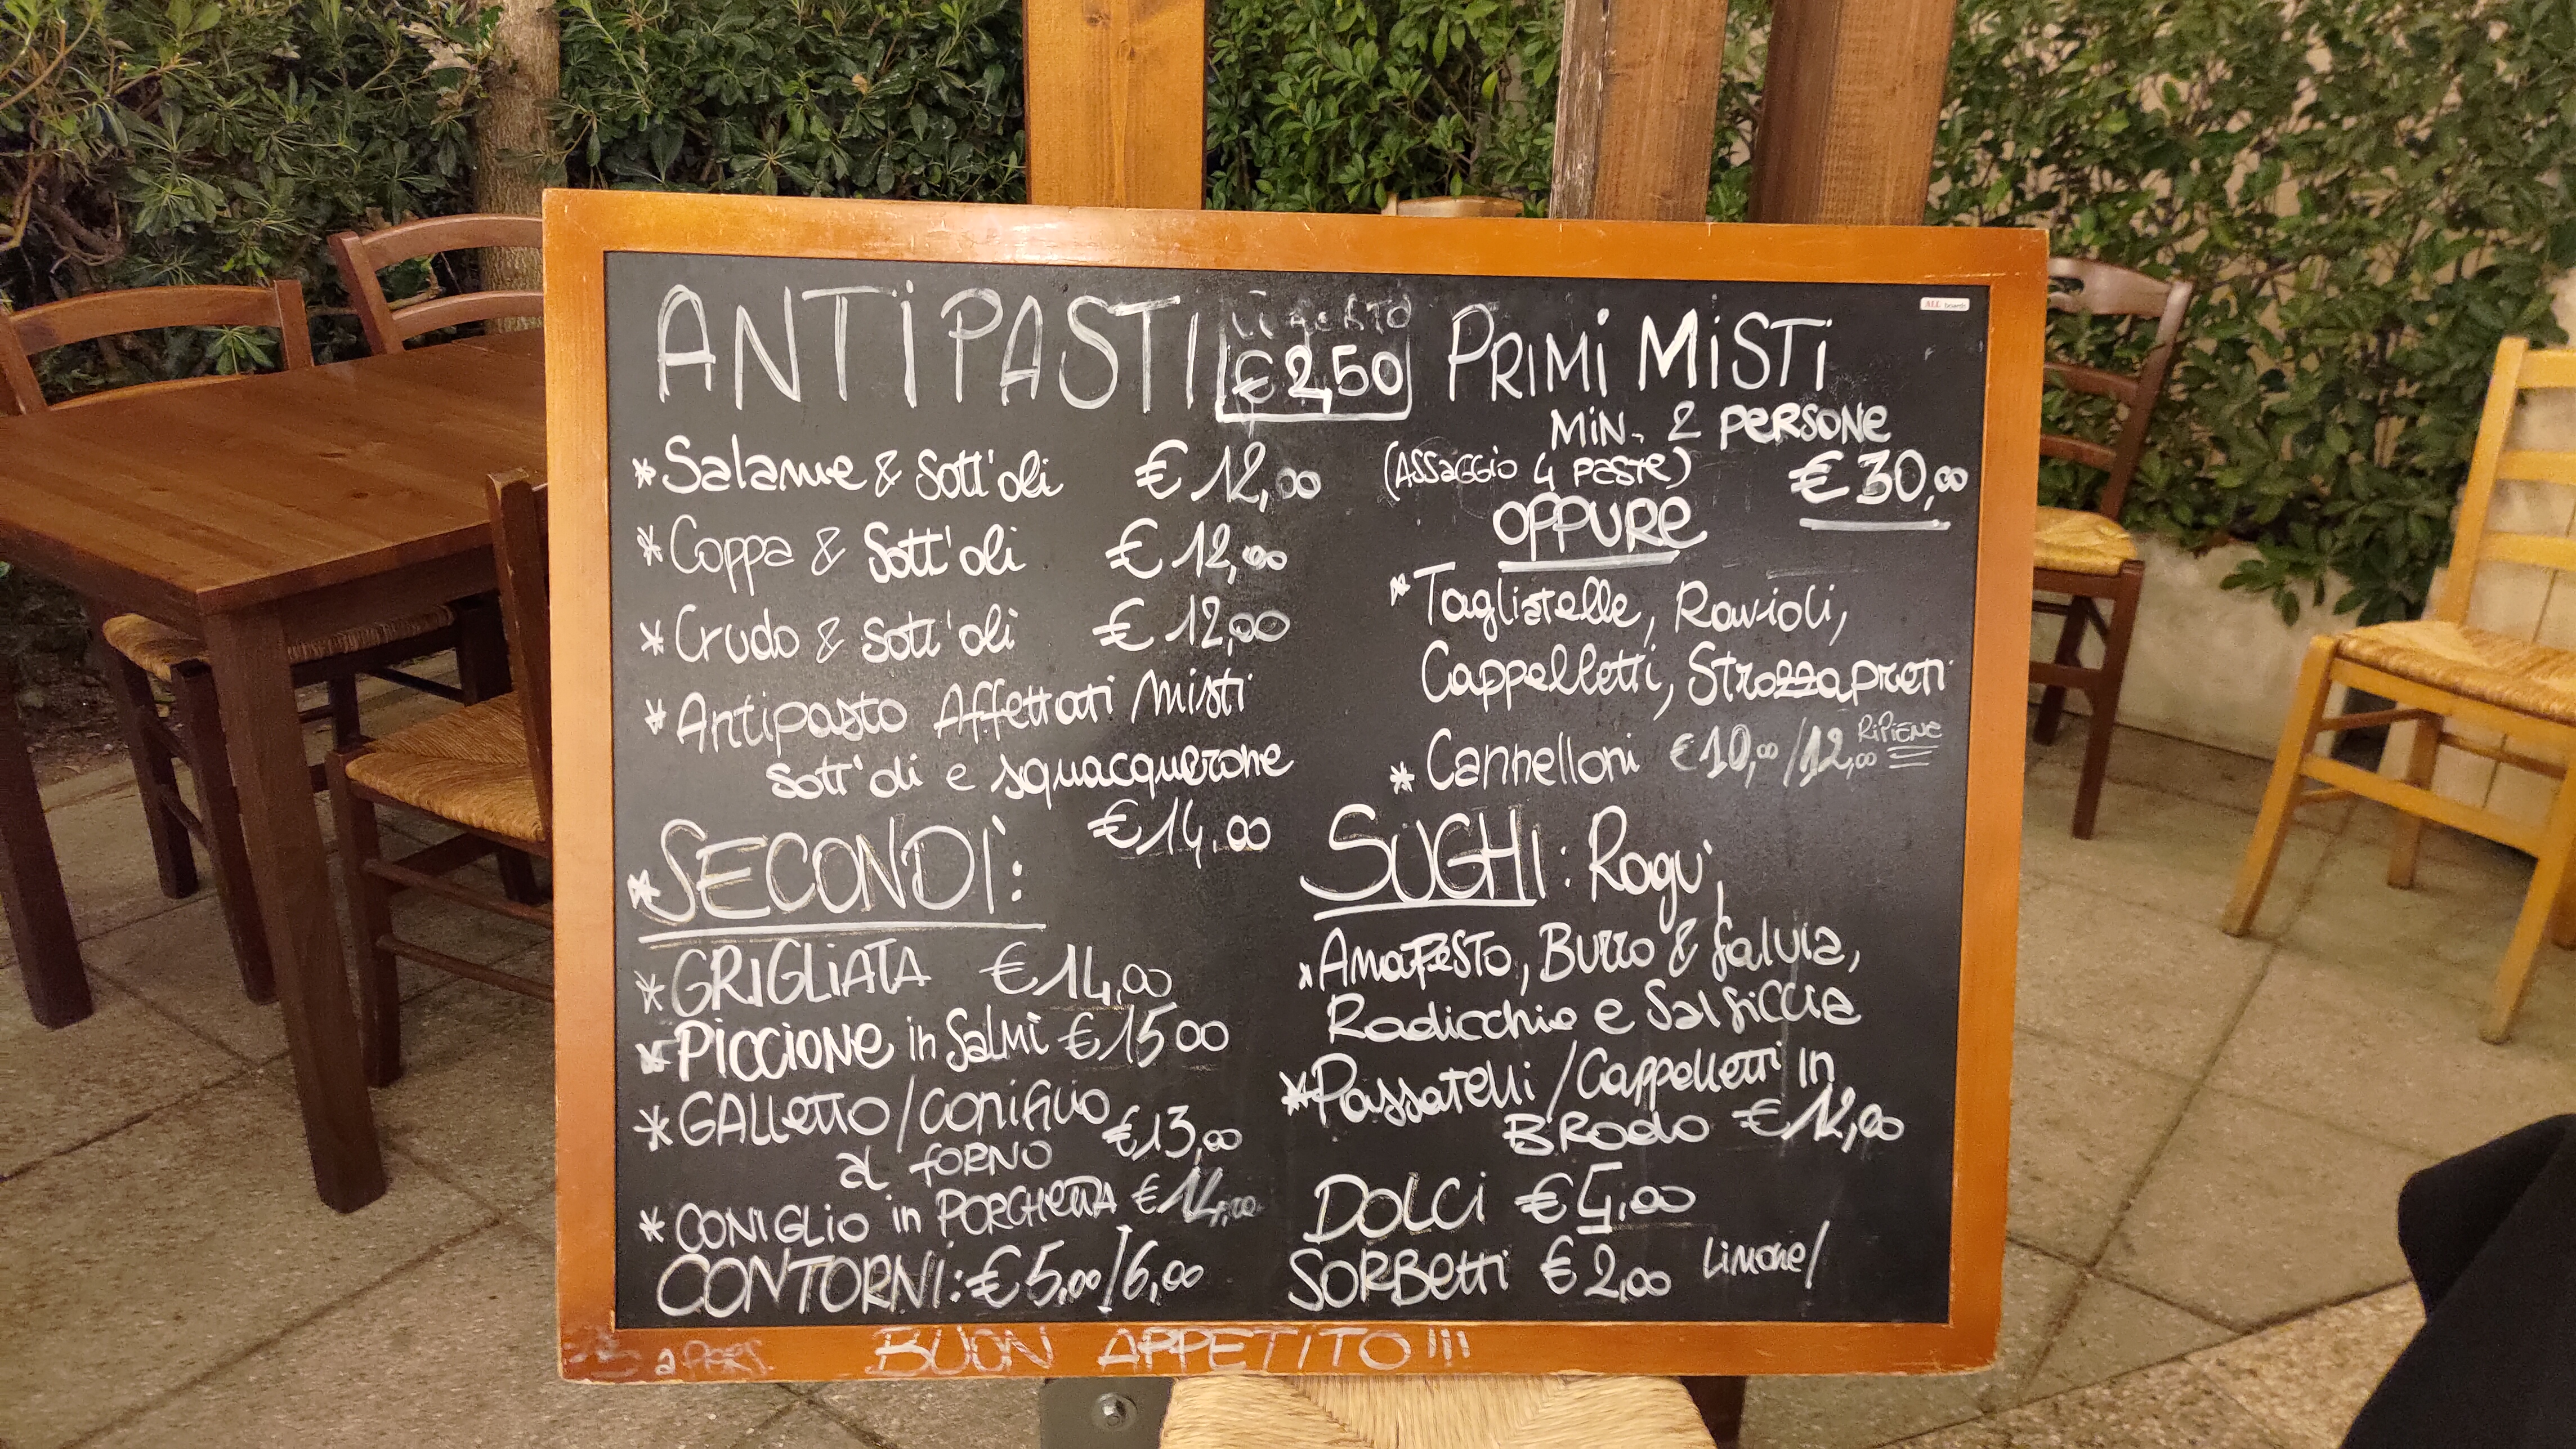 ANTIPASTI
€ 2,50
* Salame & Sott'oli € 12,00
* Coppa & Sott'oli € 12,00
* Crudo & Sott'oli € 12,00
* Antipasto Affettati Misti
Sott'oli e squacquerone
€ 14,00
* SECONDI:
* GRIGLIATA € 14,00
* PICCIONE in Salmì € 15 00
* GALLETTO / CONIGLIO
al FORNO € 13,00
* CONIGLIO in PORCHETTA € 14,00
CONTORNI: € 5,00 / 6,00
PRIMI MISTI
MIN. 2 PERSONE
(ASSAGGIO 4 PASTE) € 30,00
OPPURE
* Tagliatelle, Ravioli,
Cappelletti, Strozzapreti
* Cannelloni € 10,00 / 12,00 RIPIENE
SUGHI: Ragù,
Burro & Salvia,
Radicchio e Salsiccia
* Passatelli / Cappelletti in
BRODO € 12,00
DOLCI € 4,00
SORBETTI € 2,00 LIMONE/
a PERS.
BUON APPETITO!!!